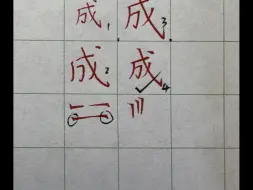 成1 成3
成2 成4